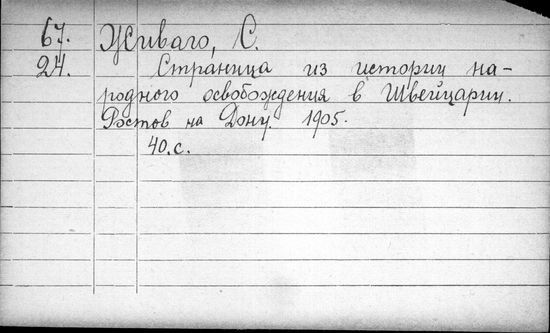 67. Живаго, С.
24. Страница из истории на-
родного освобождения в Швейцарии.
Ростов на Дону. 1905.
40.с.